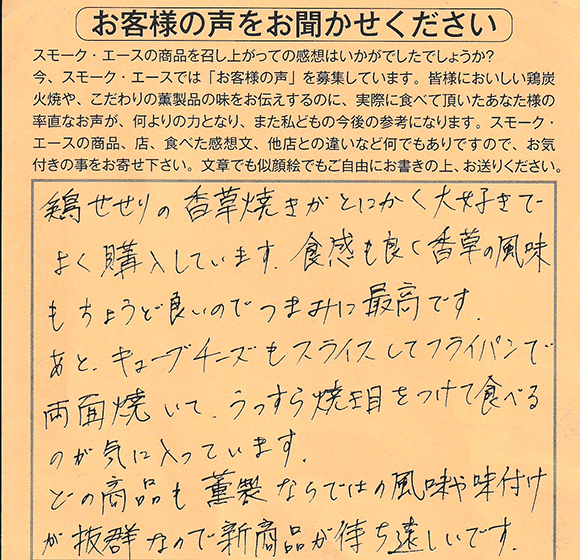 お客様の声をお聞かせください
スモーク・エースの商品を召し上がっての感想はいかがでしたでしょうか?
今、スモーク・エースでは「お客様の声」を募集しています。皆様においしい鶏炭
火焼や、こだわりの薫製品の味をお伝えするのに、実際に食べて頂いたあなた様の
率直なお声が、何よりの力となり、また私どもの今後の参考になります。スモーク・
エースの商品、店、食べた感想文、他店との違いなど何でもありですので、お気
付きの事をお寄せ下さい。文章でも似顔絵でもご自由にお書きの上、お送りください。
鶏せせりの香草焼きがとにかく大好きで
よく購入しています。食感も良く香草の風味
もちょうど良いのでつまみに最高です。
あと、キューブチーズもスライスしてフライパンで
両面焼いて、うっすら焼き目をつけて食べる
のが気に入っています。
どの商品も薫製ならではの風味や味付け
が抜群なので新商品が待ち遠しいです。